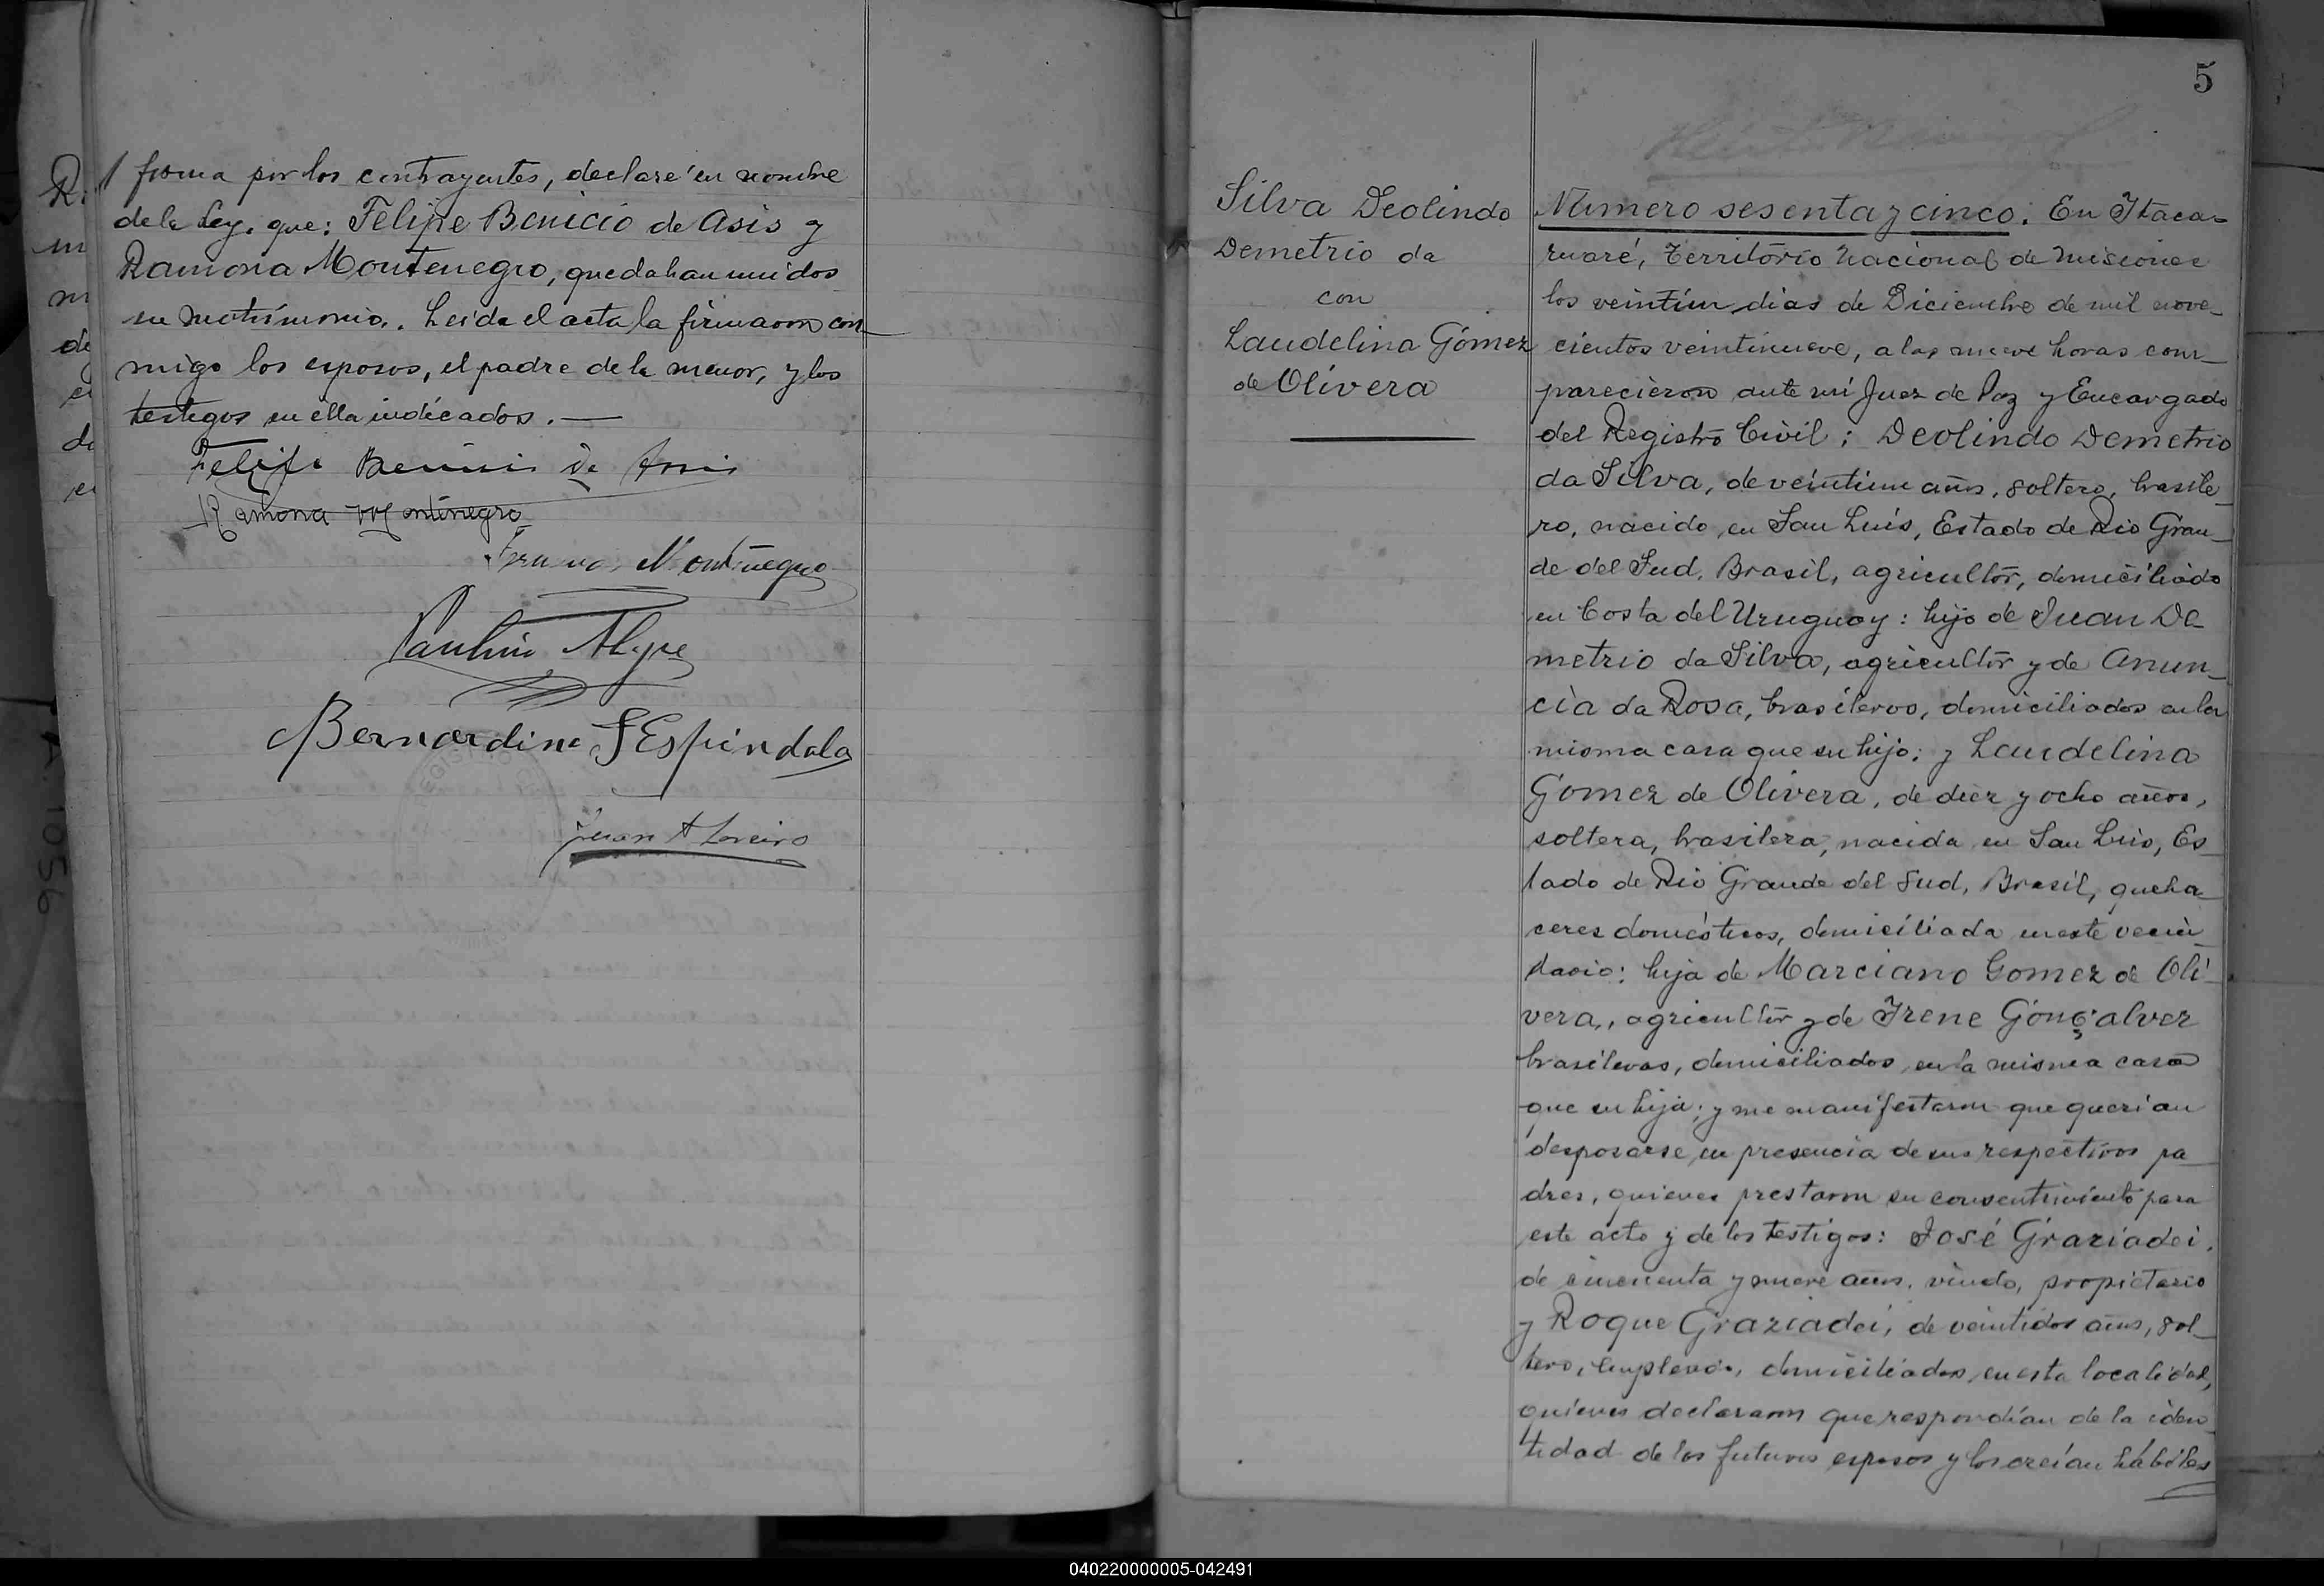 forma por los contrayentes, declaré en nombre
de la Ley. que: Felipe Benicio de Asis y
Ramona Montenegro, quedaban unidos
en matrimonio. Leida el acta la firmaron con-
migo los esposos, el padre de la menor, y los
testigos en ella indicados.—
Felipe Benicio de Assis
Ramona Montenegro
Montenegro
Paulino
Bernardino F Espindola
Juan A Loreiro
5
Silva Deolindo
Demetrio da
con
Laudelina Gómez
de Olivera
Número sesenta y cinco. En Itaca-
ruaré, Territorio Nacional de Misiones
los veintiun dias de Diciembre de mil nove-
cientos veintinueve, a las nueve horas com-
parecieron ante mi Juez de Paz y Encargado
del Registro Civil; Deolindo Demetrio
da Silva, de veintiun años, soltero, brasile-
ro, nacido en San Luis, Estado de Rio Gran-
de del Sud, Brasil, agricultor, domiciliado
en Costa del Uruguay: hijo de Juan De-
metrio da Silva, agricultor y de Anun-
cia da Rosa, brasileros, domiciliados en la
misma casa que su hijo; y Laudelina
Gomez de Olivera, de diez y ocho años,
soltera, brasilera, nacida en San Luis, Es-
tado de Rio Grande del Sud, Brasil, queha-
ceres domésticos, domiciliada en este vecin-
dario: hija de Marciano Gomez de Oli-
vera, agricultor y de Irene Gonçalvez
brasileros, domiciliados en la misma casa
que su hija; y me manifestaron que querian
desposarse en presencia de sus respectivos pa-
dres, quienes prestaron su consentimiento para
este acto y de los testigos: José Graziadei,
de cincuenta y nueve años, viudo, propietario
y Roque Graziadei, de veintidos años, sol-
tero, empleado, domiciliados en esta localidad,
quienes declararon que respondían de la iden-
tidad de los futuros esposos y los creían hábiles
040220000005-042491